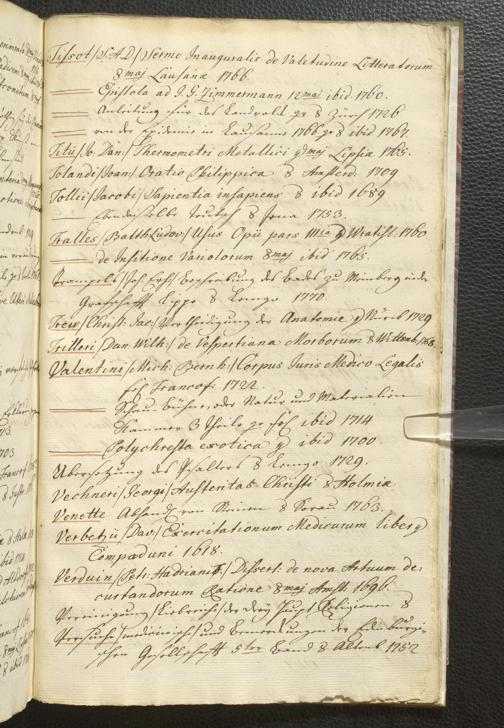 Tissot /S.A.D./ Sermo Inauguralis de Valetudine Litteratorum
8 maj Lausanæ 1766.
Epistola ad J. G. Zimmermann 12 maj ibid 1760.
Anleitung für das Landvolk gr 8 Zürch 1726
von der Epidemie in Lausanne 1766 gr 8 ibid 1767.
Titii /Jo Dan:/ Thermometri Metallici maj Lipsiæ 1765.
Tolandi /Joan/ Oratio Philippica 8 Amsterd. 1709
Tollii /Jacobi/ Sapientia insapiens 8 ibid 1689
Ebendasselbe teutsch 8 Jena 1733.
Tralles /Balth Ludov/ Usus Opii pars Wratisl. 1760
de Insitione Variolorum 8 maj ibid 1765.
Trampels /Joh Erh/ Beschreibung des Bades zu Meinberg in der
Grafschafft Lippe 8 Lemgo 1770.
Trew /Christ: Jac/ Vertheidigung der Anatomie Nürnb 1729
Trilleri /Dan. Wilh:/ de Vespertiana Morborum 8 Wittenb.
Valentini /Mich: Bernh:/ Corpus Juris Medico Legalis
fol Francof: 1722.
Schau Bühne, oder Natur und Materialien
Kammer 3 Theile gr fol ibid 1714
Polychresta exotica ibid 1700
Übersetzung des Psalters 8 Lemgo 1729.
Vechneri /Georgi/ Austeritas Christi 8 Holmiæ
Venette Abhandl: von Steinen 8 Sorau 1763.
Verbetii /Dav/ Exercitationum Medicarum liber
Campoduni 1618.
Verduin /Petr: Hadriani/ Dissert: de nova Artuum de-
curtandorum Ratione 8 maj Amst: 1696.
Vereinigung /Lieberich/ der drey Haupt Religionen 8
Versuche /medicinische/ und Bemerkungen der Edinburgi-
schen Gesellschafft 5ter Band 8 Altenb 1752